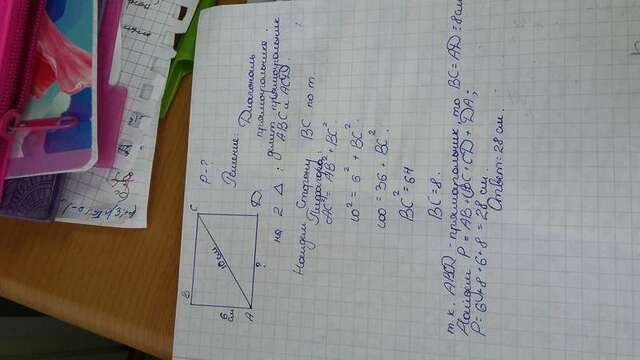 A
6
см
B
10 см
?
D
C
P-?
Решение: Диагональ
прямоугольника
делит прямоугольник
на 2 Δ: ABC и ACD.
Найдём сторону BC по т.
Пифагора:
AC² = AB² + BC²
10² = 6² + BC²
100 = 36 + BC²
BC² = 64
BC = 8.
т.к. ABCD - прямоугольник, то BC = AD = 8 см
Найдём P = AB + BC + CD + DA;
P = 6 + 8 + 6 + 8 = 28 см.
Ответ: 28 см.